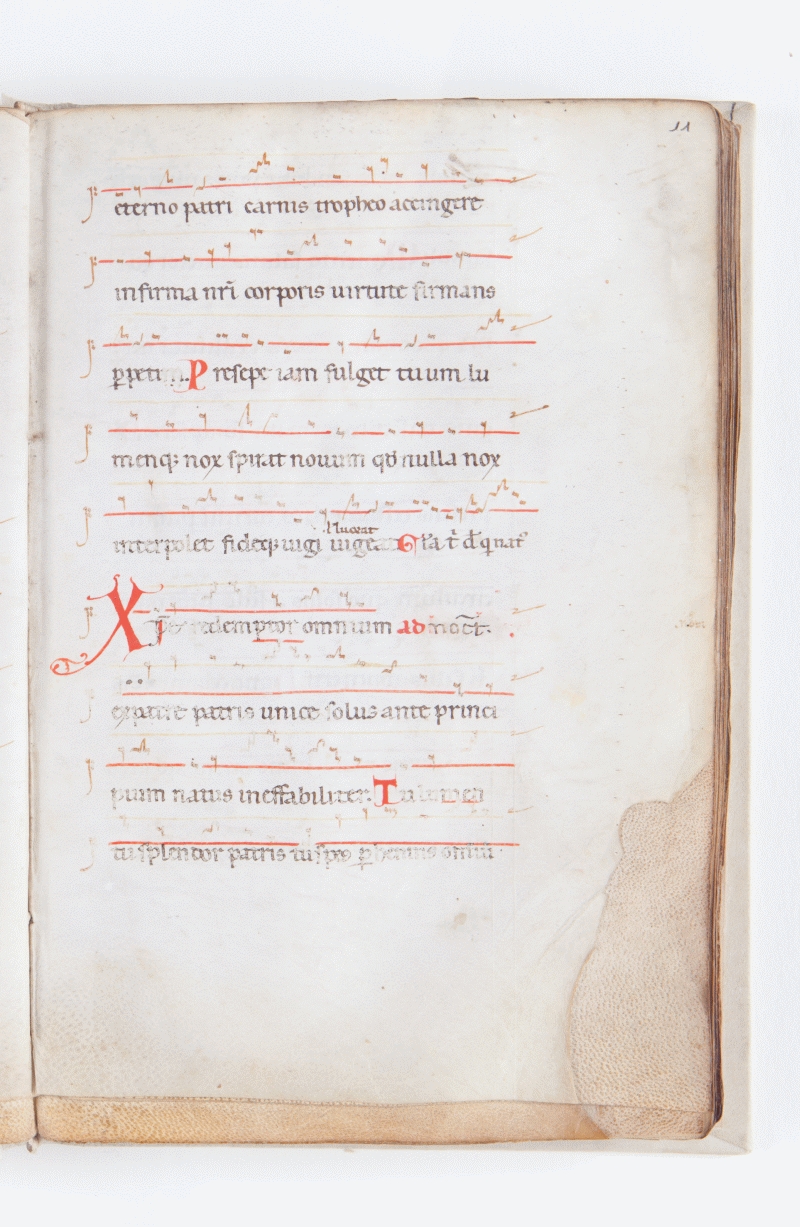 11
eterno patri carnis tropheo accingere
infirma nr̄i corporis uirtute firmans
ꝑpetim. Presepe iam fulget tuum lu
menq; nox spirat nouum qđ nulla nox
lluceat
interpolet fideq; uigi uigeat Gl̄a t̄ d̄ q̄ nat᷒
Xp̄e redemptor omnium ad noct̄.
ex patre patris unice solus ante princi
pium natus ineffabiliter. Tu lumen
tu splendor patris tu spes ꝑhennis omiū